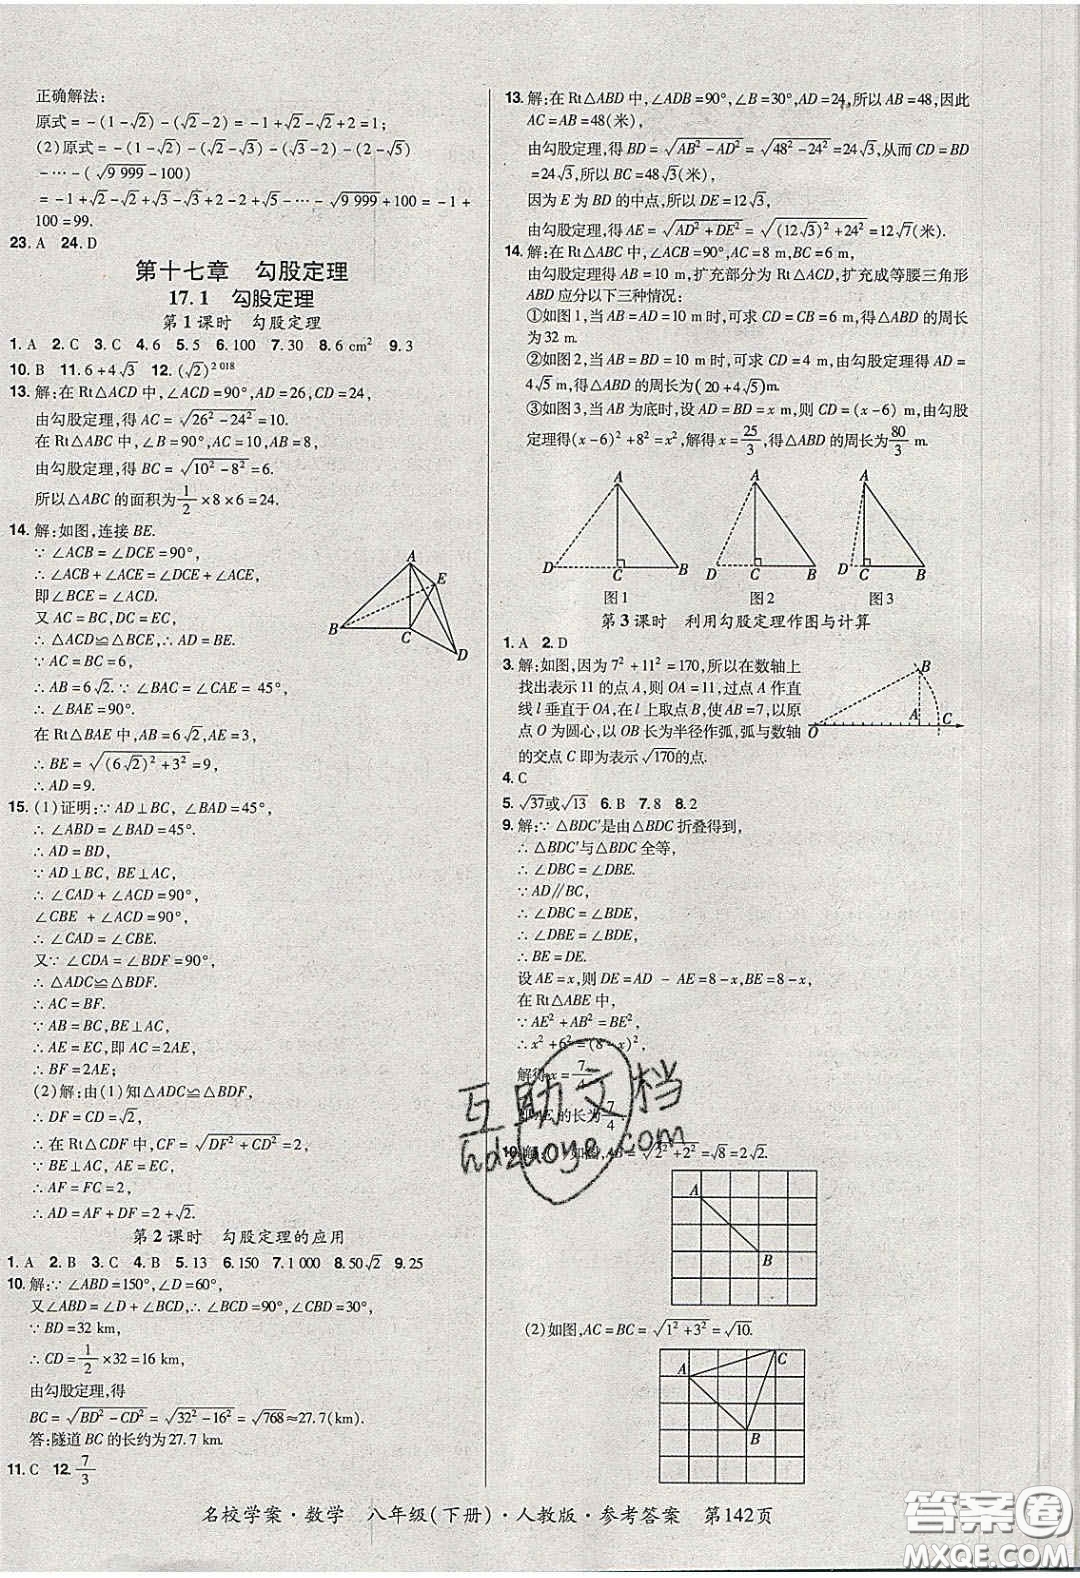 正确解法：
原式=-(1-√2)-(√2-2)=-1+√2-√2+2=1;
(2)原式=-(1-√2)-(√2-√3)-(√3-2)-(2-√5)
-…-(√9 999-100)
=-1+√2-√2+√3-√3+2-2+√5-…-√9 999+100=-1+
100=99.
23. A 24. D
第十七章 勾股定理
17.1 勾股定理
第1课时 勾股定理
1. A 2. C 3. C 4. 6 5. 5 6. 100 7. 30 8. 6 cm² 9. 3
10. B 11. 6+4√3 12. (√2)²⁰¹⁸
13. 解:在Rt△ACD中,∠ACD=90°,AD=26,CD=24,
由勾股定理,得AC=√26²-24²=10.
在Rt△ABC中,∠B=90°,AC=10,AB=8,
由勾股定理,得BC=√10²-8²=6.
所以△ABC的面积为1/2×8×6=24.
14. 解:如图,连接BE.
∵∠ACB=∠DCE=90°,
∴∠ACB+∠ACE=∠DCE+∠ACE,
即∠BCE=∠ACD.
又AC=BC,DC=EC,
∴△ACD≌△BCE,∴AD=BE.
∵AC=BC=6,
∴AB=6√2.∵∠BAC=∠CAE=45°,
∴∠BAE=90°.
在Rt△BAE中,AB=6√2,AE=3,
∴BE=√(6√2)²+3²=9,
∴AD=9.
A
E
B
C
D
15. (1)证明:∵AD⊥BC,∠BAD=45°,
∴∠ABD=∠BAD=45°.
∴AD=BD,
∵AD⊥BC,BE⊥AC,
∴∠CAD+∠ACD=90°,
∠CBE+∠ACD=90°,
∴∠CAD=∠CBE.
又∵∠CDA=∠BDF=90°,
∴△ADC≌△BDF.
∴AC=BF.
∵AB=BC,BE⊥AC,
∴AE=EC,即AC=2AE,
∴BF=2AE;
(2)解:由(1)知△ADC≌△BDF,
∴DF=CD=√2,
∴在Rt△CDF中,CF=√DF²+CD²=2,
∵BE⊥AC,AE=EC,
∴AF=FC=2,
∴AD=AF+DF=2+√2.
第2课时 勾股定理的应用
1. A 2. B 3. C 4. B 5. 13 6. 150 7. 1 000 8. 50√2 9. 25
10. 解:∵∠ABD=150°,∠D=60°,
又∠ABD=∠D+∠BCD,∴∠BCD=90°,∠CBD=30°,
∵BD=32 km,
∴CD=1/2×32=16 km,
由勾股定理,得
BC=√BD²-CD²=√32²-16²=√768≈27.7(km).
答:隧道BC的长约为27.7 km.
11. C 12. 7/3
13. 解:在Rt△ABD中,∠ADB=90°,∠B=30°,AD=24,所以AB=48,因此
AC=AB=48(米),
由勾股定理,得BD=√AB²-AD²=√48²-24²=24√3,从而CD=BD
=24√3,所以BC=48√3(米),
因为E为BD的中点,所以DE=12√3,
由勾股定理,得AE=√AD²+DE²=√(12√3)²+24²=12√7(米).
14. 解:在Rt△ABC中,∠ACB=90°,AC=8 m,BC=6 m,
由勾股定理得AB=10 m,扩充部分为Rt△ACD,扩充成等腰三角形
ABD应分以下三种情况:
①如图1,当AB=AD=10 m时,可求CD=CB=6 m,得△ABD的周长
为32 m.
②如图2,当AB=BD=10 m时,可求CD=4 m,由勾股定理得AD=
4√5 m,得△ABD的周长为(20+4√5)m.
③如图3,当AB为底时,设AD=BD=x m,则CD=(x-6) m,由勾股
定理得(x-6)²+8²=x²,解得x=25/3,得△ABD的周长为80/3 m.
A
D
C
B
图1
A
D
C
B
图2
A
D
C
B
图3
第3课时 利用勾股定理作图与计算
1. A 2. D
3. 解:如图,因为7²+11²=170,所以在数轴上
找出表示11的点A,则OA=11,过点A作直
线l垂直于OA,在l上取点B,使AB=7,以原
点O为圆心,以OB长为半径作弧,弧与数轴
的交点C即为表示√170的点.
B
A
C
O
4. C
5. √37或√13 6. B 7. 8 8. 2
9. 解:∵△BDC′是由△BDC折叠得到,
∴△BDC′与△BDC全等,
∴∠DBC=∠DBE,
∵AD∥BC,
∴∠DBC=∠BDE,
∴∠DBE=∠BDE,
∴BE=DE.
设AE=x,则DE=AD-AE=8-x,BE=8-x,
在Rt△ABE中,
∵AE²+AB²=BE²,
∴x²+6²=(8-x)²,
解得x=7
的长为7/4.
如图,AB=√2²+2²=√8=2√2.
A
B
(2)如图,AC=BC=√1²+3²=√10.
A
C
B
互助文档
hdzuoye.com
名校学案·数学 八年级(下册)·人教版·参考答案 第142页
答案圈
MXQE.COM